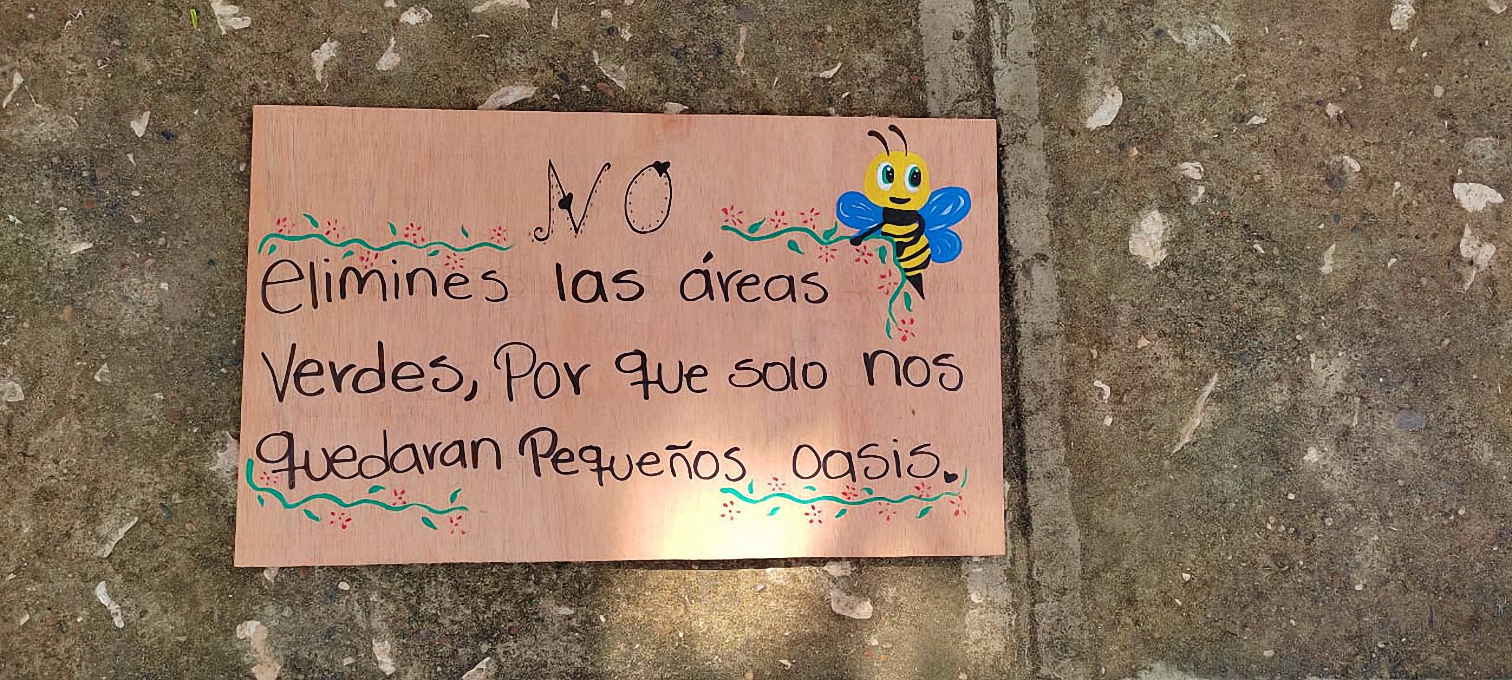 NO
elimines las áreas
Verdes, Por que solo nos
quedaran Pequeños oasis.